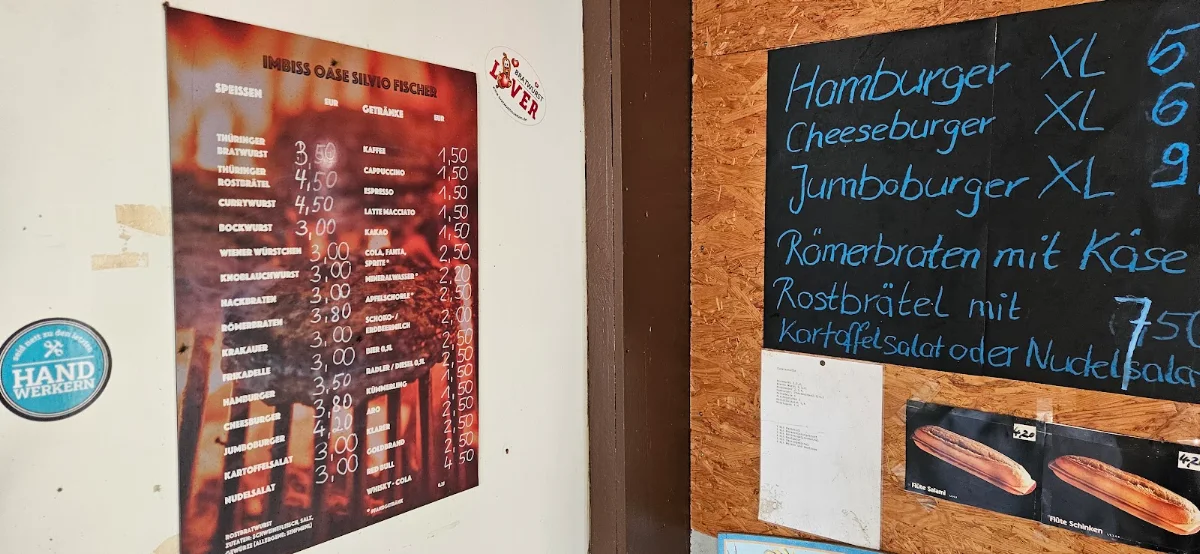 IMBISS OASE SILVIO FISCHER
SPEISSEN
EUR
THÜRINGER
BRATWURST 3,50
THÜRINGER
ROSTBRÄTEL 4,50
CURRYWURST 4,50
BOCKWURST 3,00
WIENER WÜRSTCHEN 3,00
KNOBLAUCHWURST 3,00
HACKBRATEN 3,00
RÖMERBRATEN 3,80
KRAKAUER 3,00
FRIKADELLE 3,00
HAMBURGER 3,50
CHEESBURGER 3,80
JUMBOBURGER 4,20
KARTOFFELSALAT 3,00
NUDELSALAT 3,00
ROSTBRATWURST
ZUTATEN: SCHWEINEFLEISCH, SALZ,
GEWÜRZE (ALLERGENE, SENFMEHL)
GETRÄNKE
EUR
KAFFEE 1,50
CAPPUCCINO 1,50
ESPRESSO 1,50
LATTE MACCIATO 1,50
KAKAO 1,50
COLA, FANTA,
SPRITE * 2,50
MINERALWASSER * 2,20
APFELSCHORLE * 2,50
SCHOKO- /
ERDBEERMILCH 2,00
BIER 0,5L 2,50
RADLER / DIESEL 0,5L 2,00
KÜMMERLING 1,50
ABO 2,50
KLARER 2,50
GOLDBRAND 2,50
RED BULL 4,50
WHISKY - COLA
* PFANDGETRÄNKE
BRATWURST
LOVER
seid nett zu den letzten
HAND
WERKERN
Hamburger XL 6
Cheeseburger XL 6
Jumboburger XL 9
Römerbraten mit Käse
Rostbrätel mit 7,50
Kartoffelsalat oder Nudelsala
4,20
Flûte Salami
4,20
Flûte Schinken